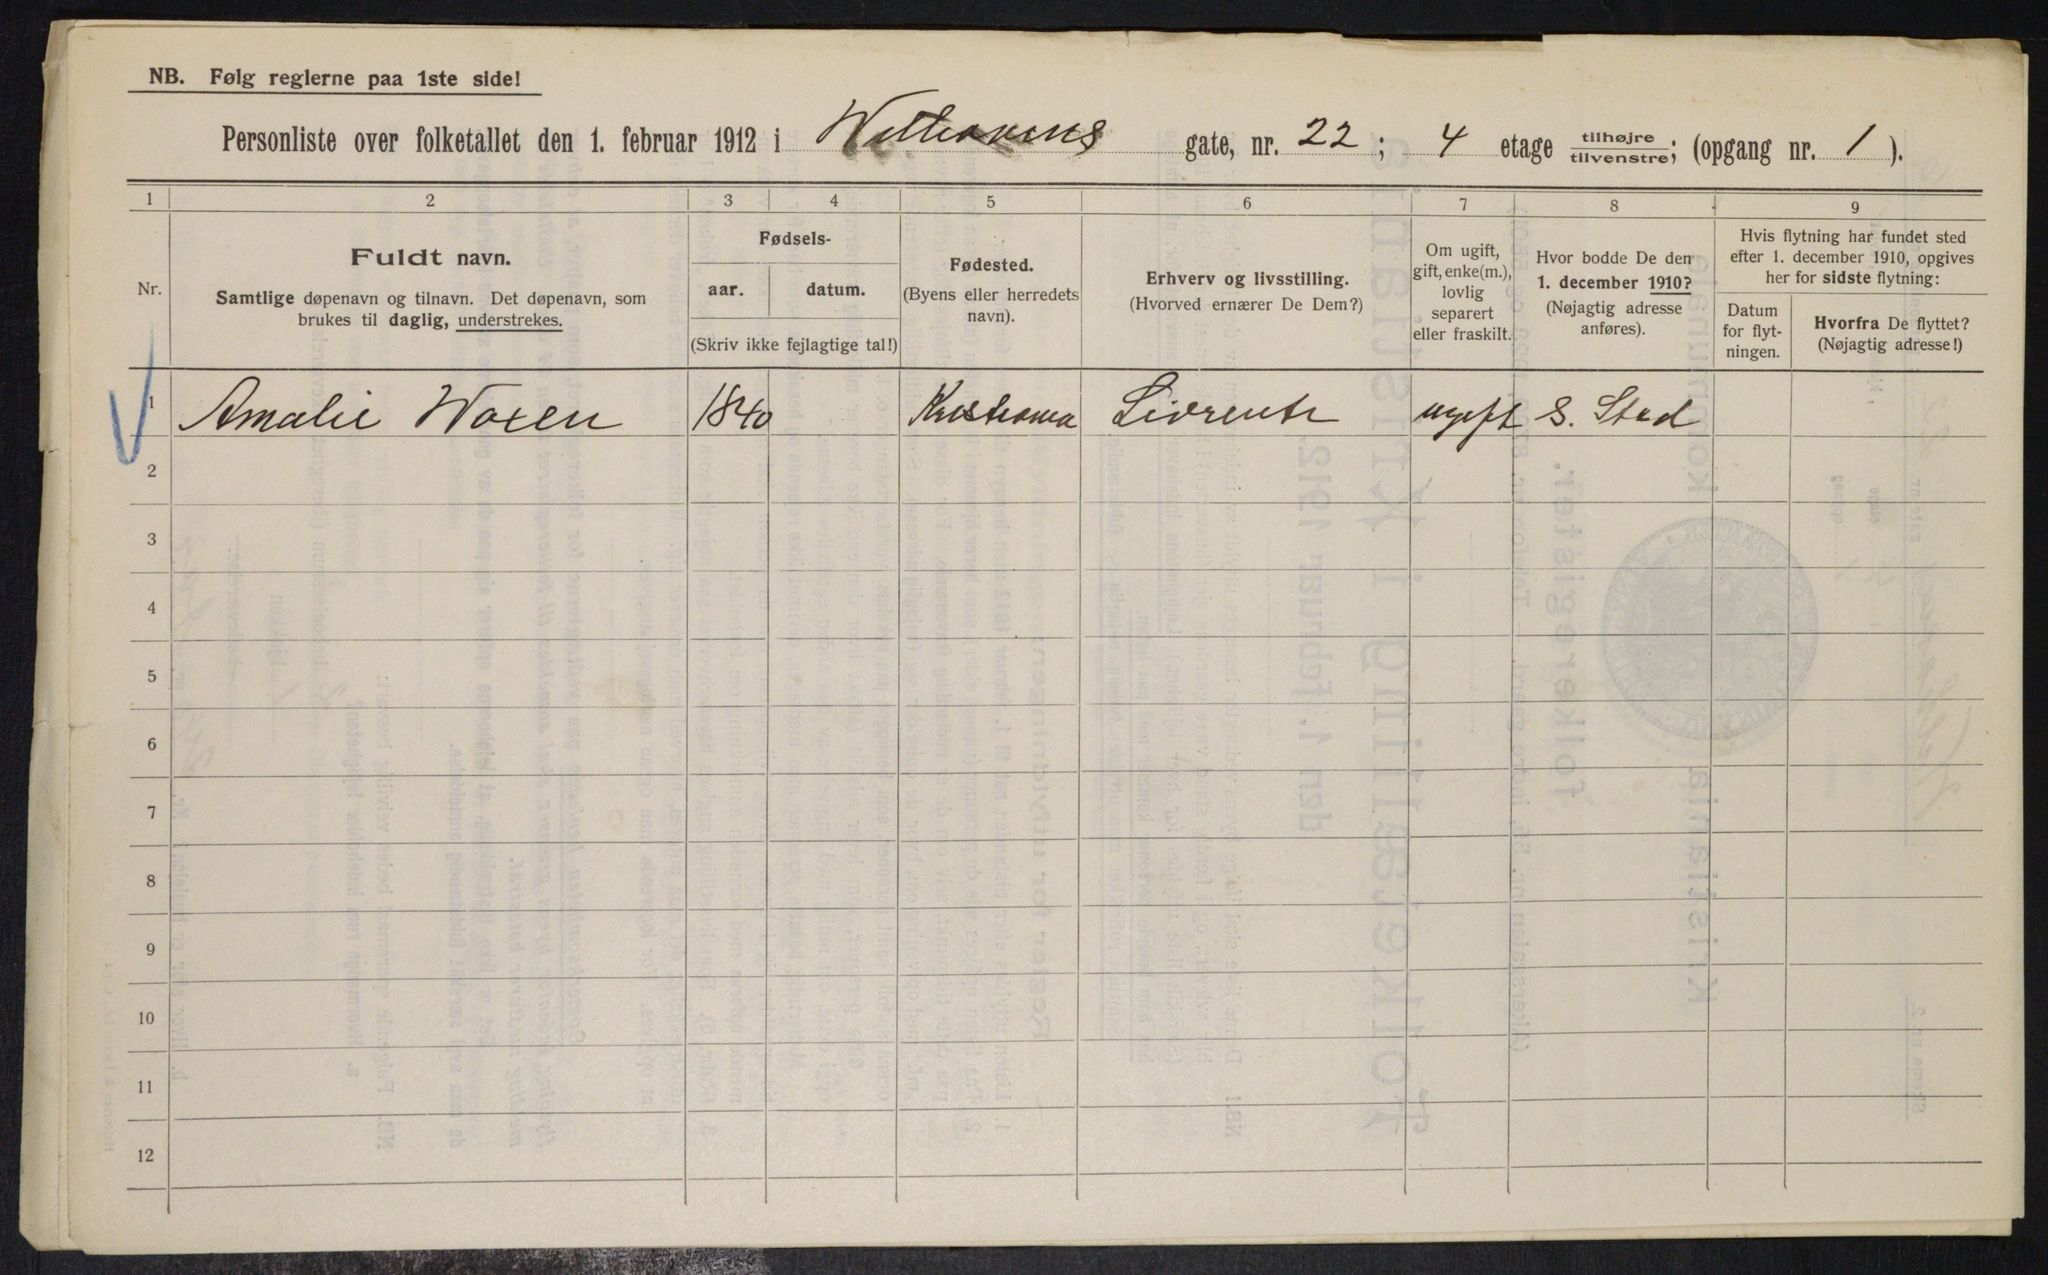 NB. Følg reglerne paa 1ste side!
Personliste over folketallet den 1. februar 1912 i Welhavens gate, nr. 22; 4 etage tilhøjre tilvenstre; (opgang nr. 1).
1 2 3 4 5 6 7 8 9
Nr.
Fuldt navn.
Samtlige døpenavn og tilnavn. Det døpenavn, som
brukes til daglig, understrekes.
Fødsels-
aar. datum.
(Skriv ikke fejlagtige tal!)
Fødested.
(Byens eller herredets
navn).
Erhverv og livsstilling.
(Hvorved ernærer De Dem?)
Om ugift,
gift, enke(m.),
lovlig
separert
eller fraskilt.
Hvor bodde De den
1. december 1910?
(Nøjagtig adresse
anføres).
Hvis flytning har fundet sted
efter 1. december 1910, opgives
her for sidste flytning:
Datum
for flyt-
ningen.
Hvorfra De flyttet?
(Nøjagtig adresse!)
1 Amalie Woxen 1840 Kristiania Livrente ugift S. Sted
2
3
4
5
6
7
8
9
10
11
12